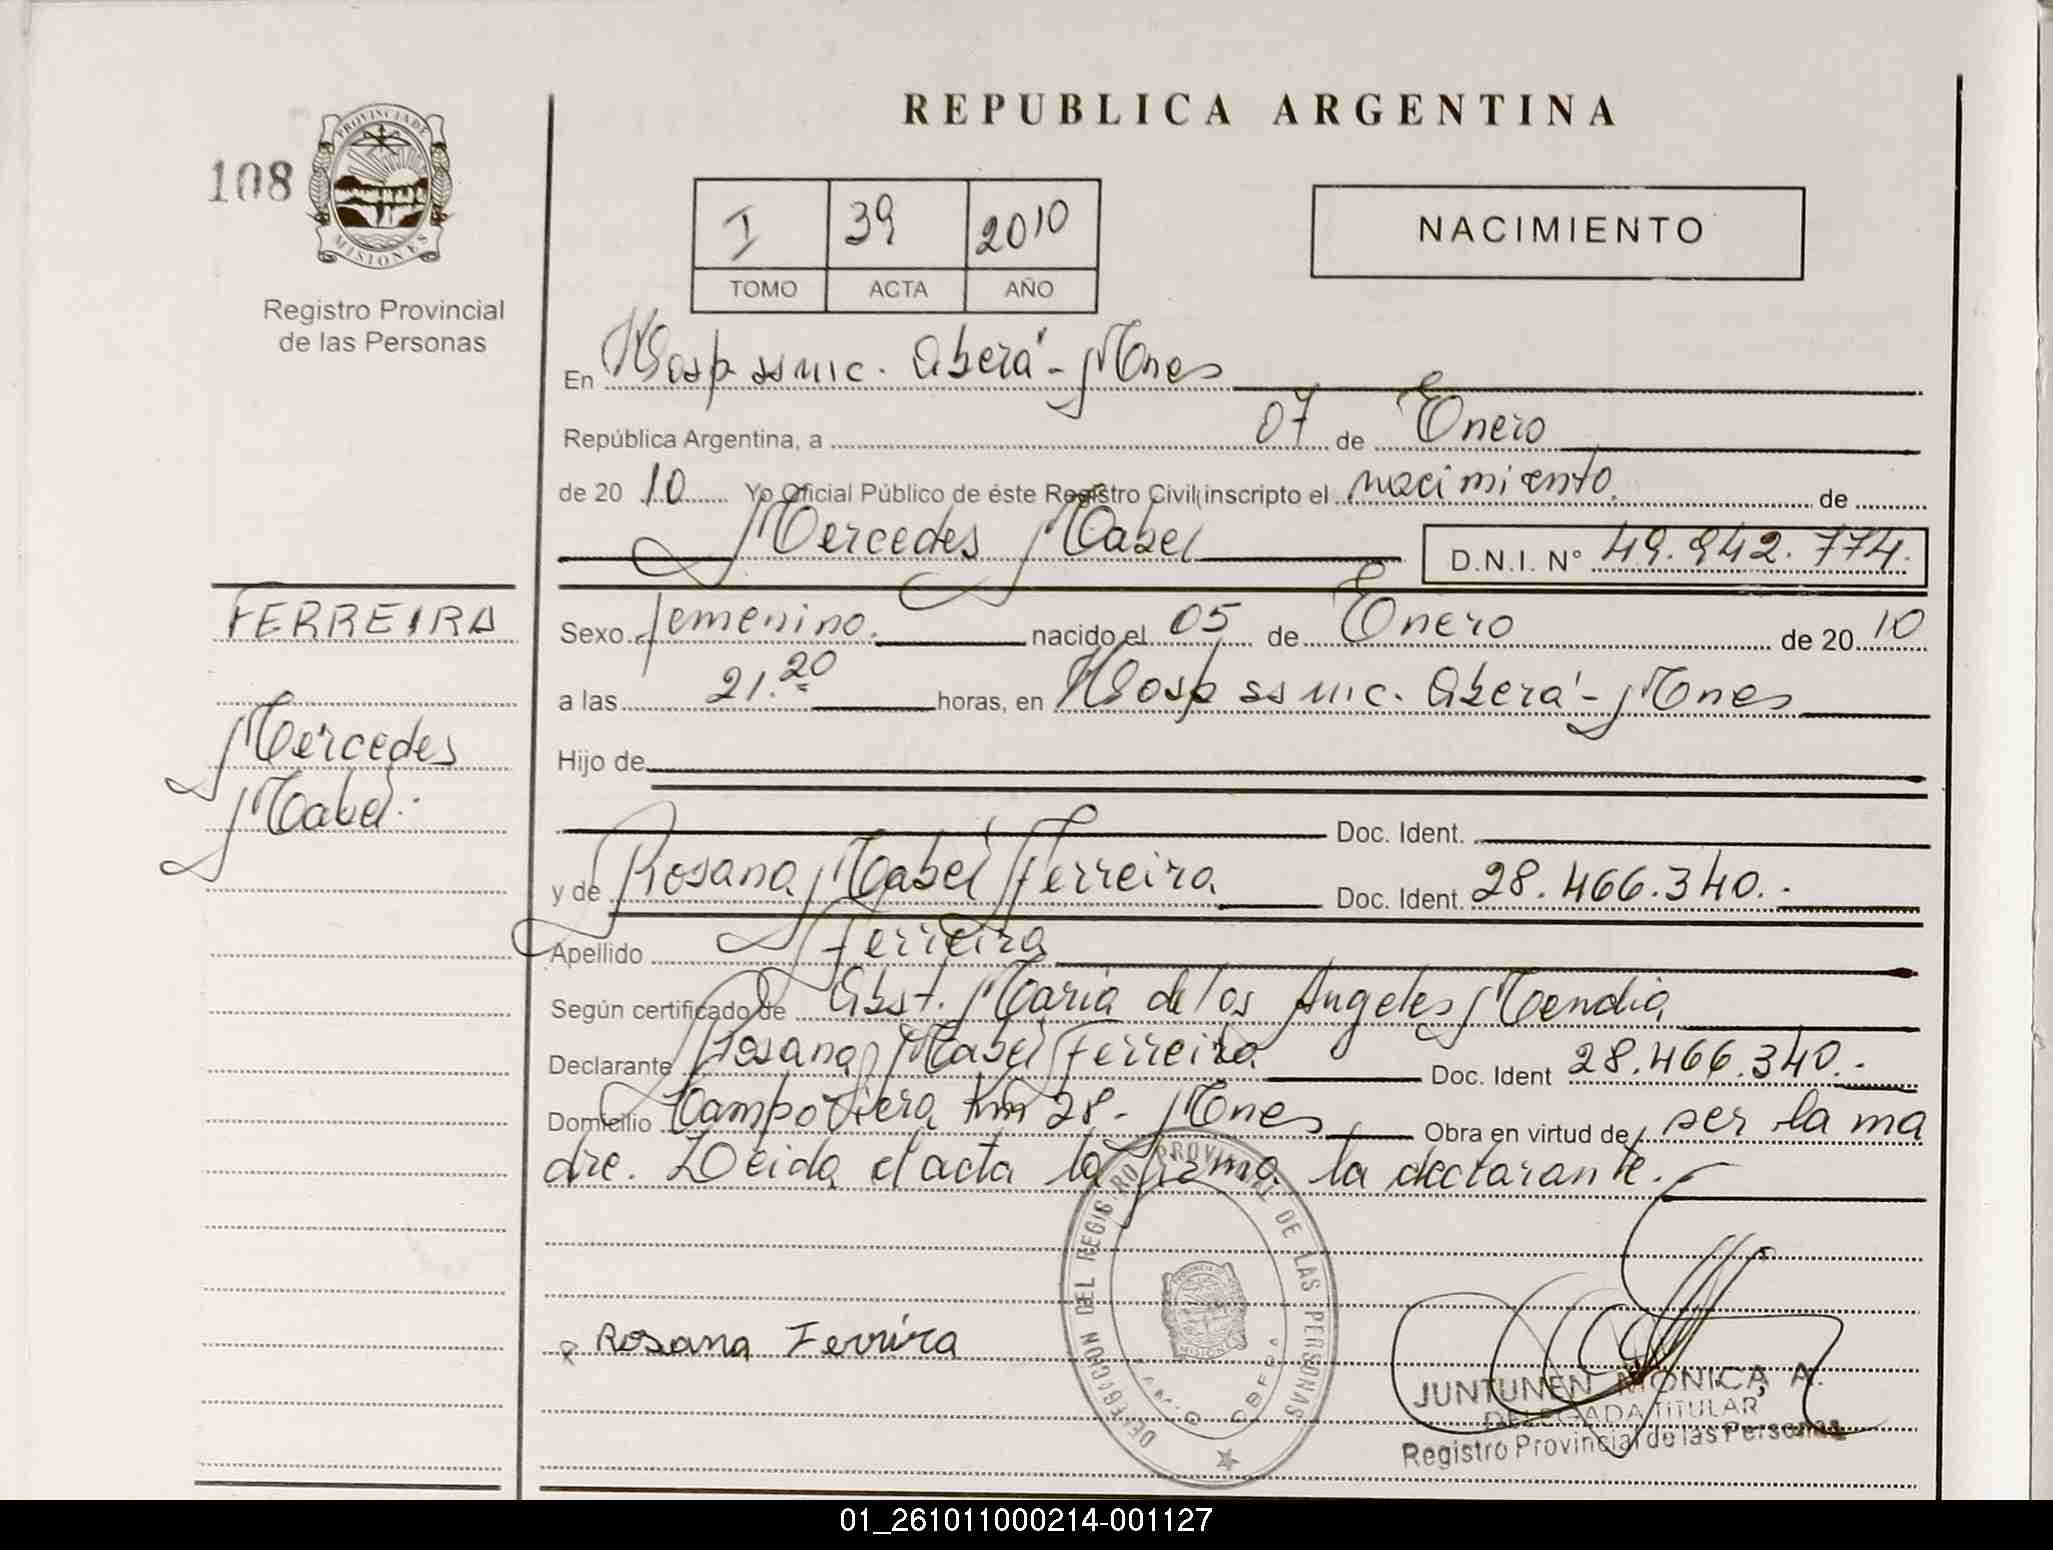 REPUBLICA ARGENTINA
108
PROVINCIA DE
MISIONES
Registro Provincial
de las Personas
I 39 2010
TOMO ACTA AÑO
NACIMIENTO
En Hosp ssmic. Oberá - Mnes
República Argentina, a 07 de Enero
de 20 10 Yo Oficial Público de éste Registro Civil inscripto el nacimiento de
Mercedes Mabel D.N.I. Nº 49.942.774.
FERREIRA
Mercedes
Mabel.
Sexo femenino. nacido el 05 de Enero de 20 10
a las 21.20 horas, en Hosp ssmic. Oberá - Mnes
Hijo de
Doc. Ident.
y de Rosana Mabel Ferreira Doc. Ident. 28.466.340.-
Apellido Ferreira
Según certificado de Obst. Maria de los Angeles Mendia
Declarante Rosana Mabel Ferreira Doc. Ident 28.466.340.-
Domicilio Campo Viera km 28 - Mnes Obra en virtud de ser la ma
dre. Leida el acta la firma la declarante.
DELEGACION DEL REGISTRO PROVINCIAL DE LAS PERSONAS
Rosana Ferreira
JUNTUNEN MONICA A.
DELEGADA TITULAR
Registro Provincial de las Personas
01_261011000214-001127